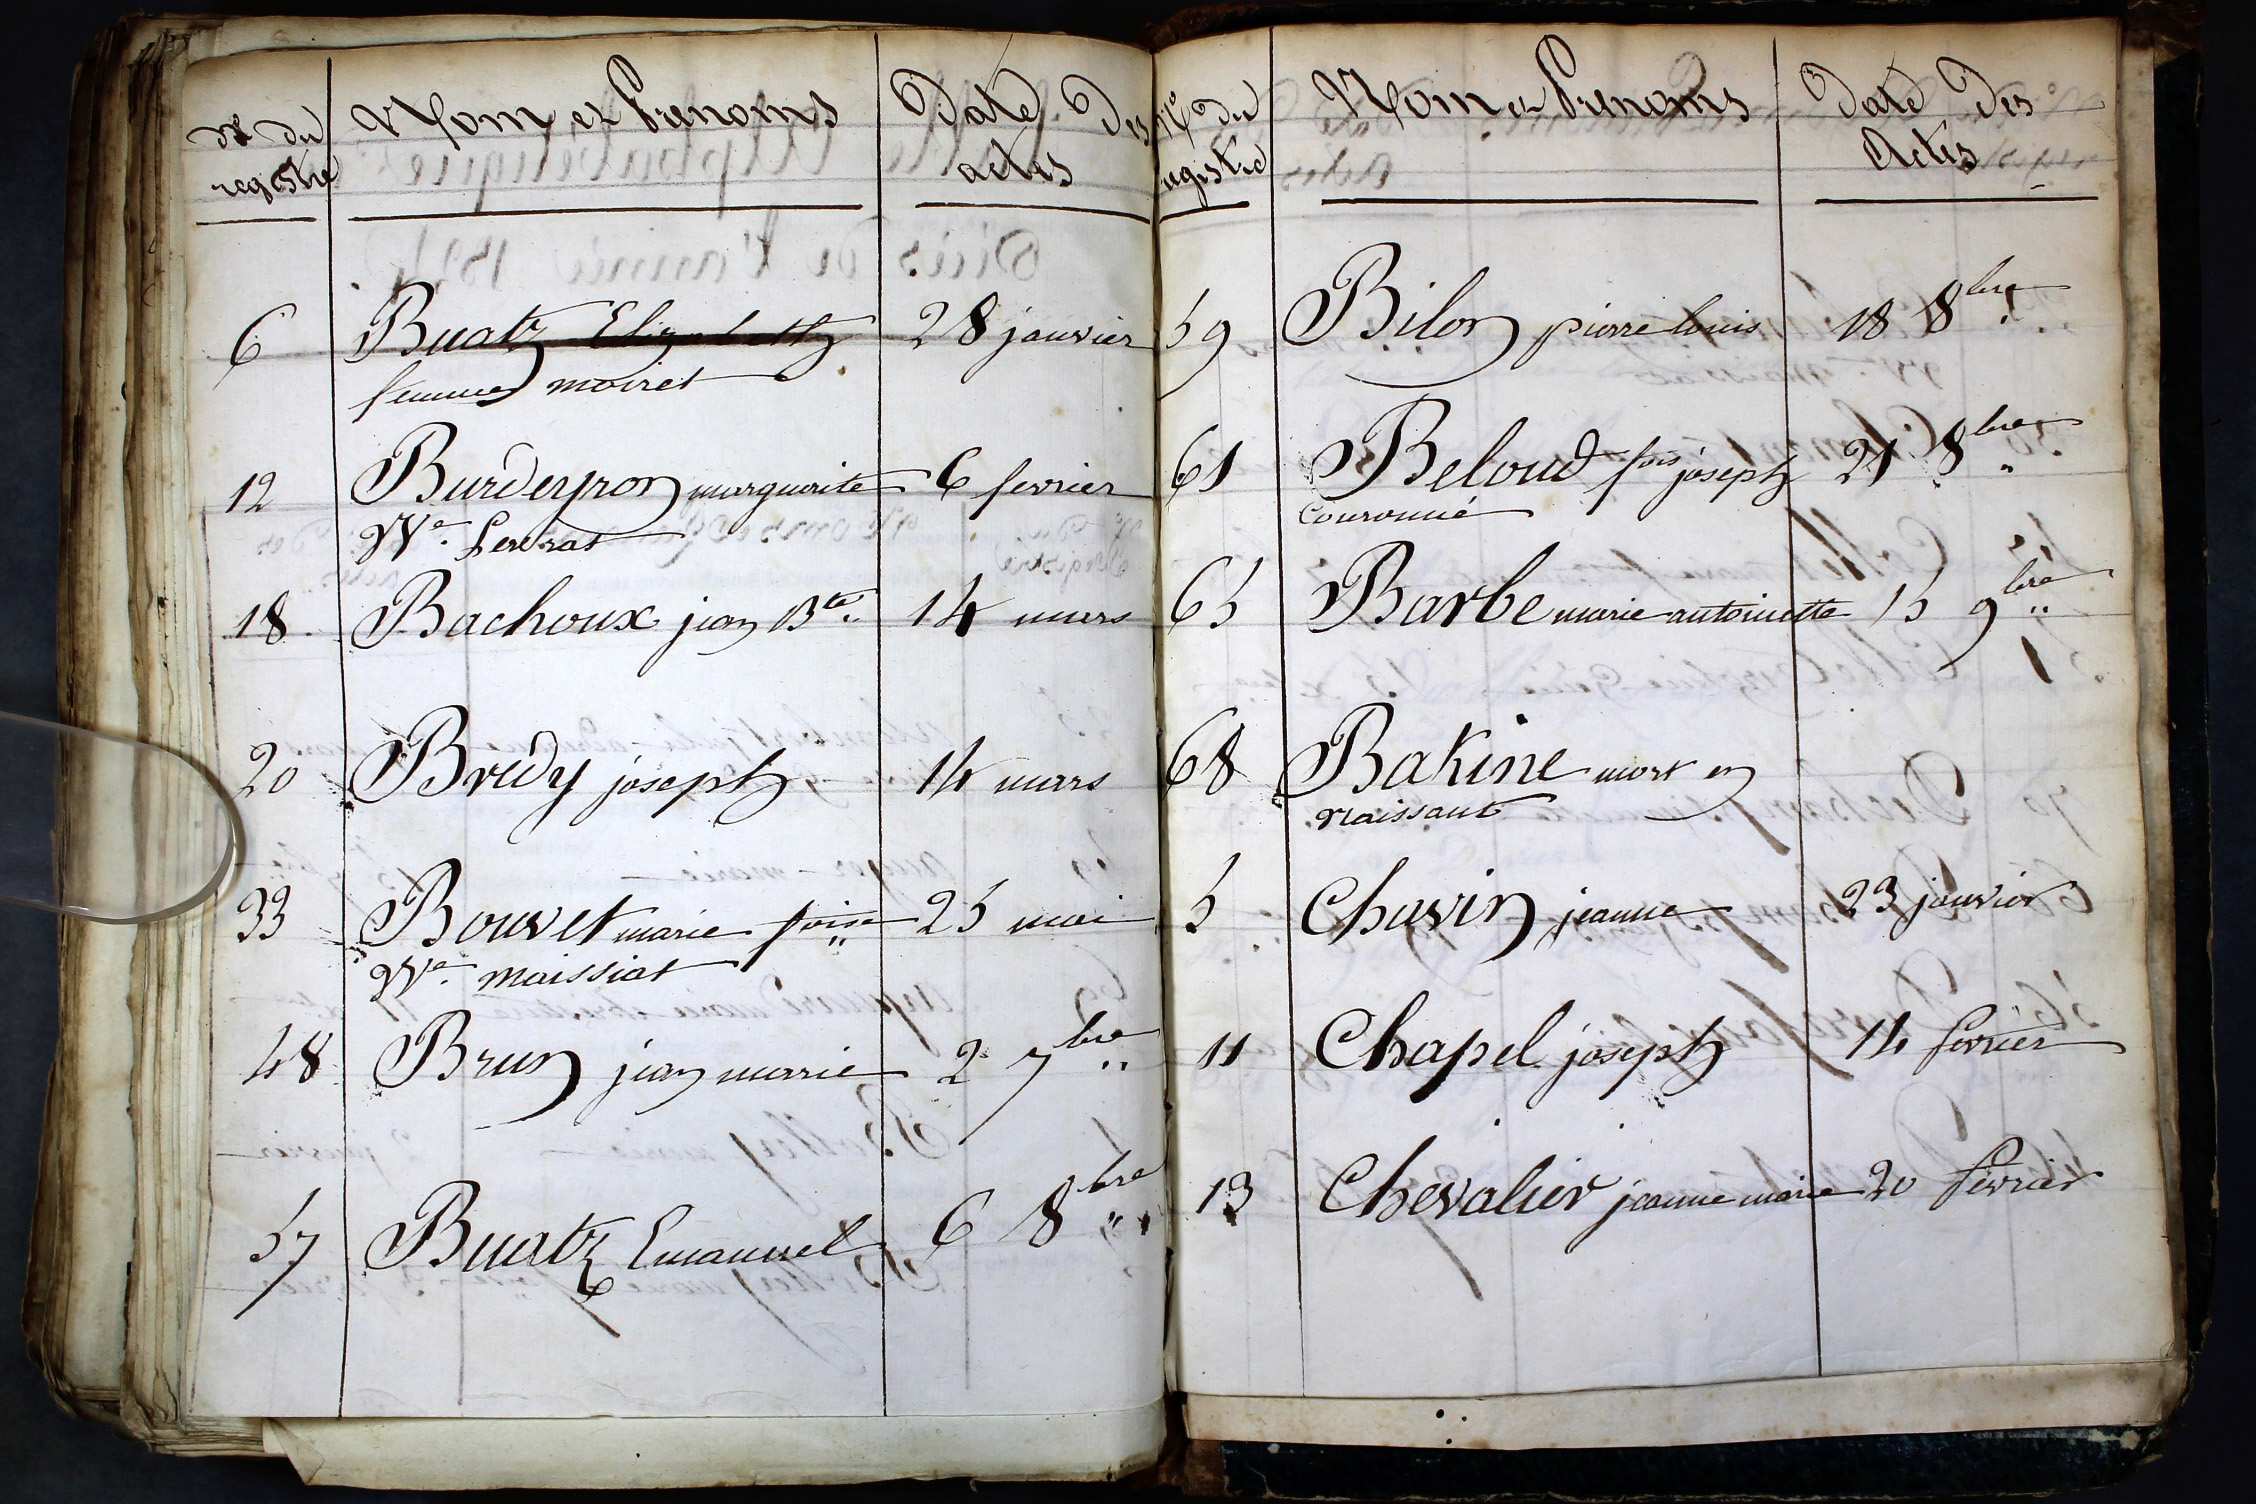 N° du registre | Nom et Prenoms | Date Des actes
6 | Buatz Elizabeth | 28 janvier
femme moiret
12 | Burdeyron marguerite | 6 fevrier
Vve Perras
18 | Bachoux jean Bte | 14 mars
20 | Bridy joseph | 14 mars
33 | Bouvet marie foise | 25 mai
Vve Maissiat
48 | Brun jean marie | 2 7bre
57 | Buatz Emanuel | 6 8bre
N° du registre | Nom et Prenoms | Date Des Actes
59 | Bilon pierre louis | 18 8bre
61 | Beloud fois joseph | 21 8bre
Couronné
65 | Barbe marie antoinette | 15 9bre
68 | Bakine mort en
naissant
5 | Chavin jeanne | 23 janvier
11 | Chapel joseph | 14 fevrier
13 | Chevalier jeanne marie | 20 fevrier